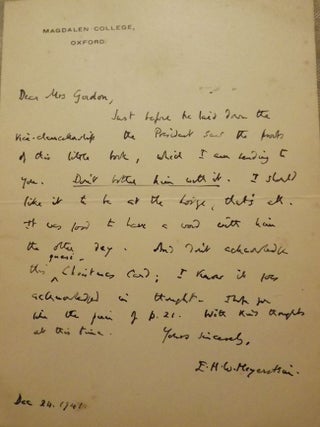 MAGDALEN COLLEGE,
OXFORD.
Dear Mrs Gordon,
Just before he laid down the
vice-chancellorship the President saw the proofs
of this little book, which I am sending to
you. Don't bother him with it. I should
like it to be at the Lodge, that's all.
It was good to have a word with him
the other day. And don't acknowledge
this quasi Christmas Card; I know it goes
acknowledged in thought.
the of p. 21. With kind thoughts
at this time.
Yours sincerely,
E.H.W. Meyerstein.
Dec 24. 1941